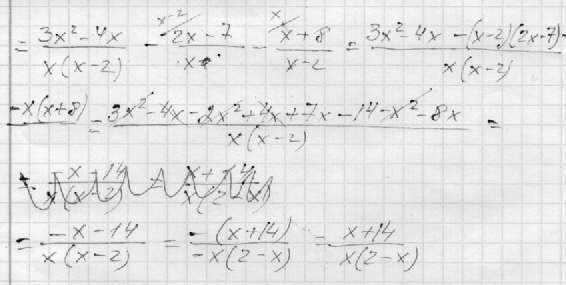 = \frac{3x²-4x}{x(x-2)} - \frac{2x-7}{x}^{x-2} - \frac{x+8}{x-2}^{x} = \frac{3x²-4x-(x-2)(2x-7)-}{x(x-2)}
\frac{-x(x+8)}{} = \frac{3x²-4x-2x²+4x+7x-14-x²-8x}{x(x-2)} =
= \frac{-x-14}{x(x-2)} = \frac{-(x+14)}{-x(2-x)} = \frac{x+14}{x(2-x)}